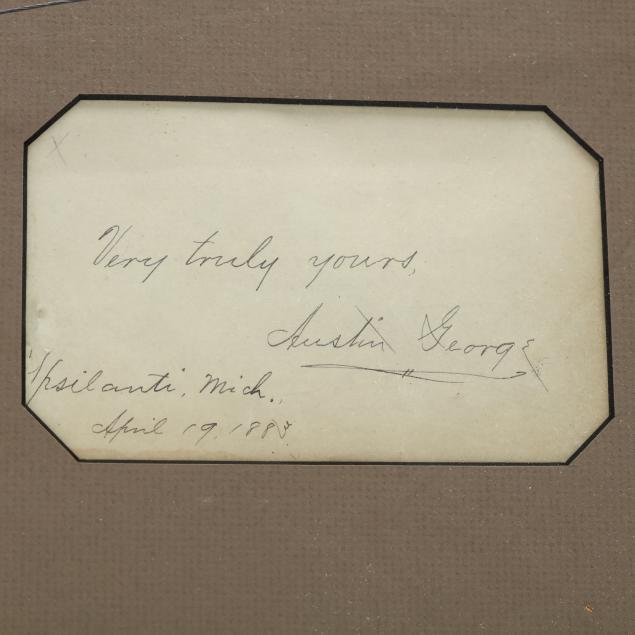 Very truly yours,
Austin George
Ypsilanti, Mich.,
April 19, 1883